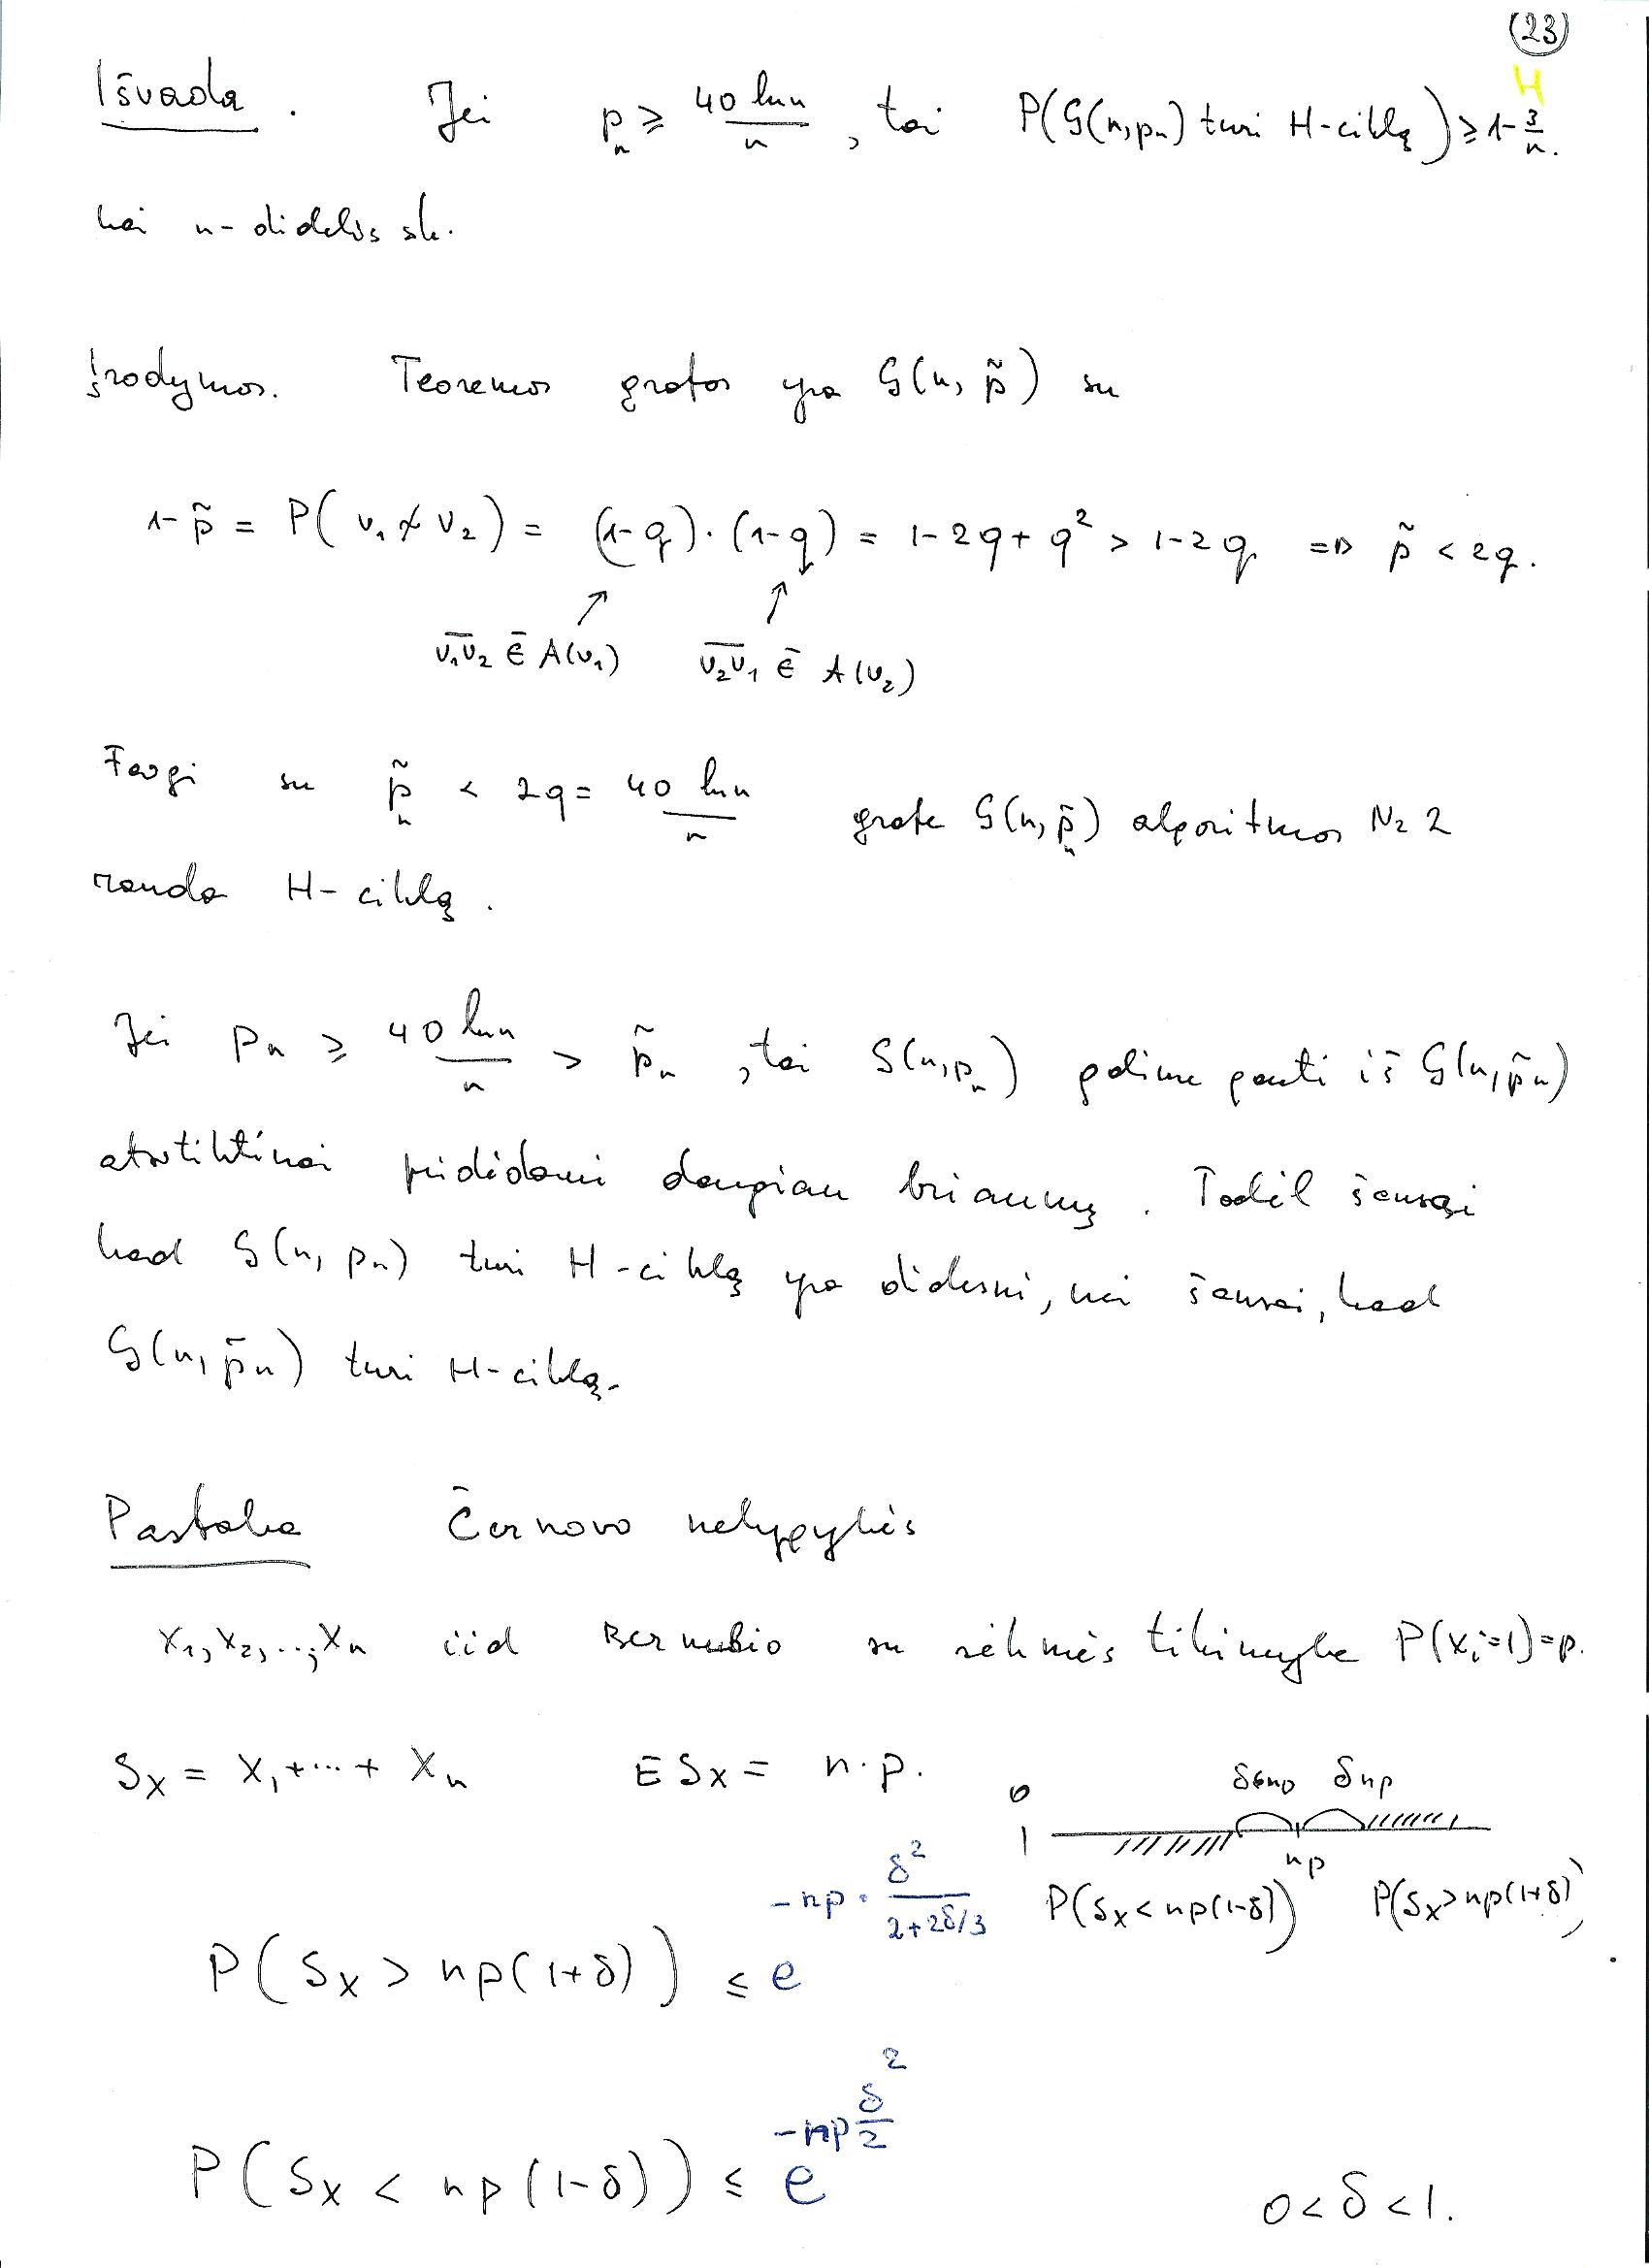 (23)
H
Išvada. Jei pₙ ≥ 40 ln n / n, tai P(G(n,pₙ) turi H-ciklą) ≥ 1 - 3/n.
kai n - didelis sk.
Įrodymas. Teoremos grafas yra G(n, p̃) su
1 - p̃ = P(v₁ ≁ v₂) = (1-q)·(1-q) = 1 - 2q + q² > 1 - 2q ⇒ p̃ < 2q.
↑ ↑
v₁v₂ ∈̄ A(v₁) v₂v₁ ∈̄ A(v₂)
Taigi su p̃ₙ < 2q = 40 ln n / n grafe G(n, p̃ₙ) algoritmas N2 2
randa H-ciklą.
Jei pₙ ≥ 40 ln n / n > p̃ₙ, tai G(n,pₙ) galime gauti iš G(n,p̃ₙ)
atsitiktinai pridėdami daugiau briaunų. Todėl šansai
kad G(n, pₙ) turi H-ciklą yra didesni, nei šansai, kad
G(n, p̃ₙ) turi H-ciklą.
Pastaba Černovo nelygybės
X₁, X₂, ..., Xₙ iid Bernulio su sėkmės tikimybe P(Xᵢ=1)=p.
Sₓ = X₁ + ··· + Xₙ ESₓ = n·p.
0 δnp np
P(Sₓ < np(1-δ)) P(Sₓ > np(1+δ))
P(Sₓ > np(1+δ)) ≤ e^(-np · δ² / (2+2δ/3))
P(Sₓ < np(1-δ)) ≤ e^(-np δ²/2) 0 < δ < 1.